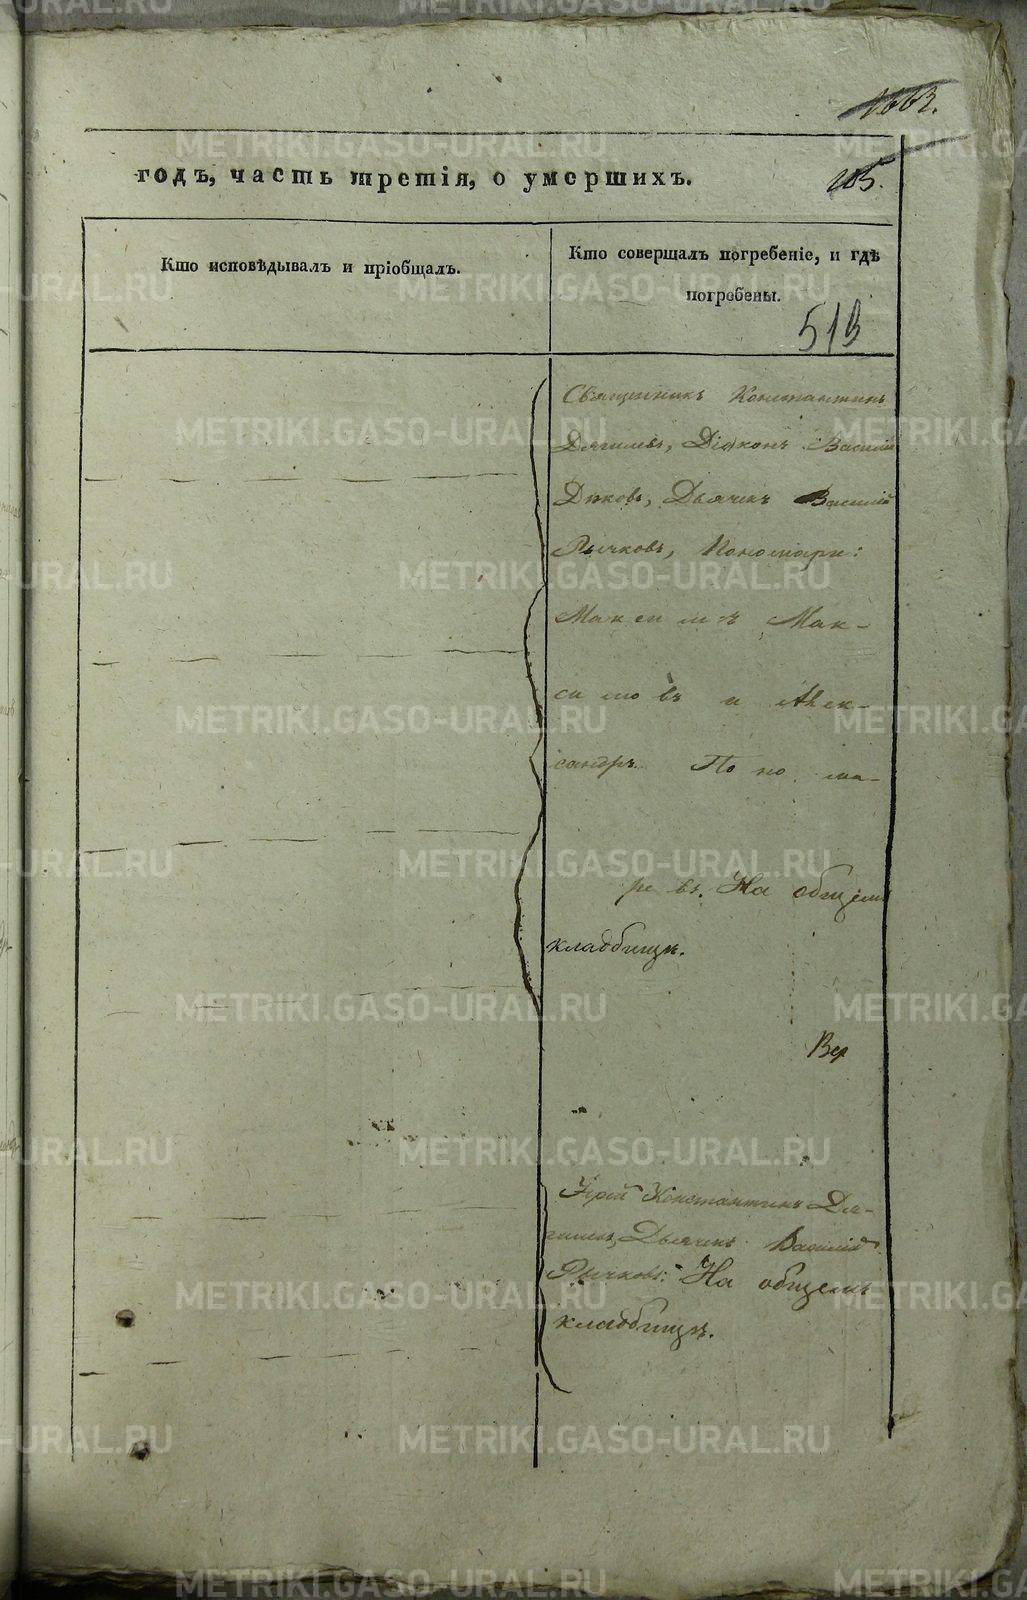 1663.
годъ, часть третія, о умершихъ.
205.
Кто исповѣдывалъ и пріобщалъ.
Кто совершалъ погребеніе, и гдѣ
погребены.
513
Священникъ Константинъ
Дягилевъ, Діаконъ Василій
Дьячекъ Василій
Рычковъ, Пономари:
Максимъ Мак-
симовъ и Алек-
сандръ Поно ма-
ре въ. На общемъ
кладбищѣ.
Вер
Іерей Константинъ Дя-
гилевъ, Дьячекъ Василій
Рычковъ: На общемъ
кладбищѣ.
METRIKI.GASO-URAL.RU